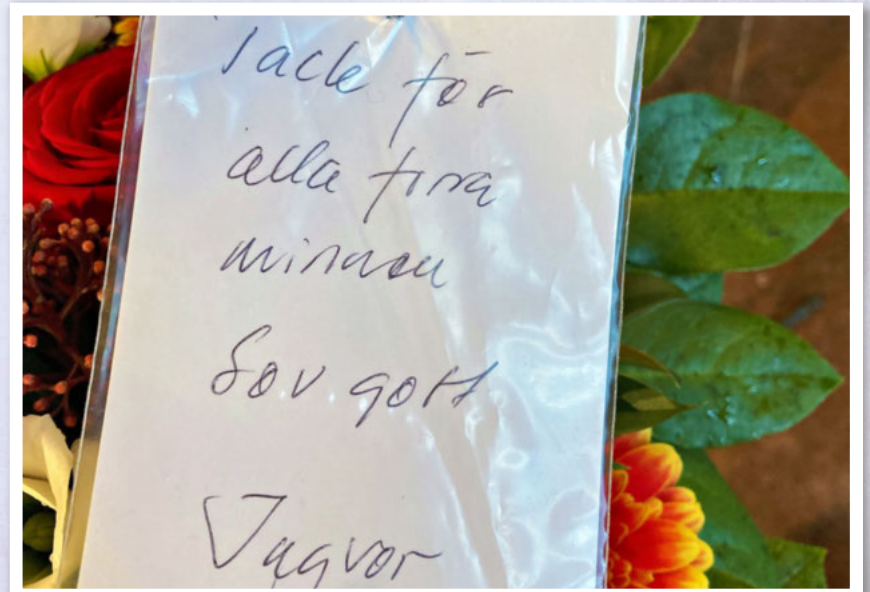 Tack för
alla fina
minnen
Sov gott
Ingvor